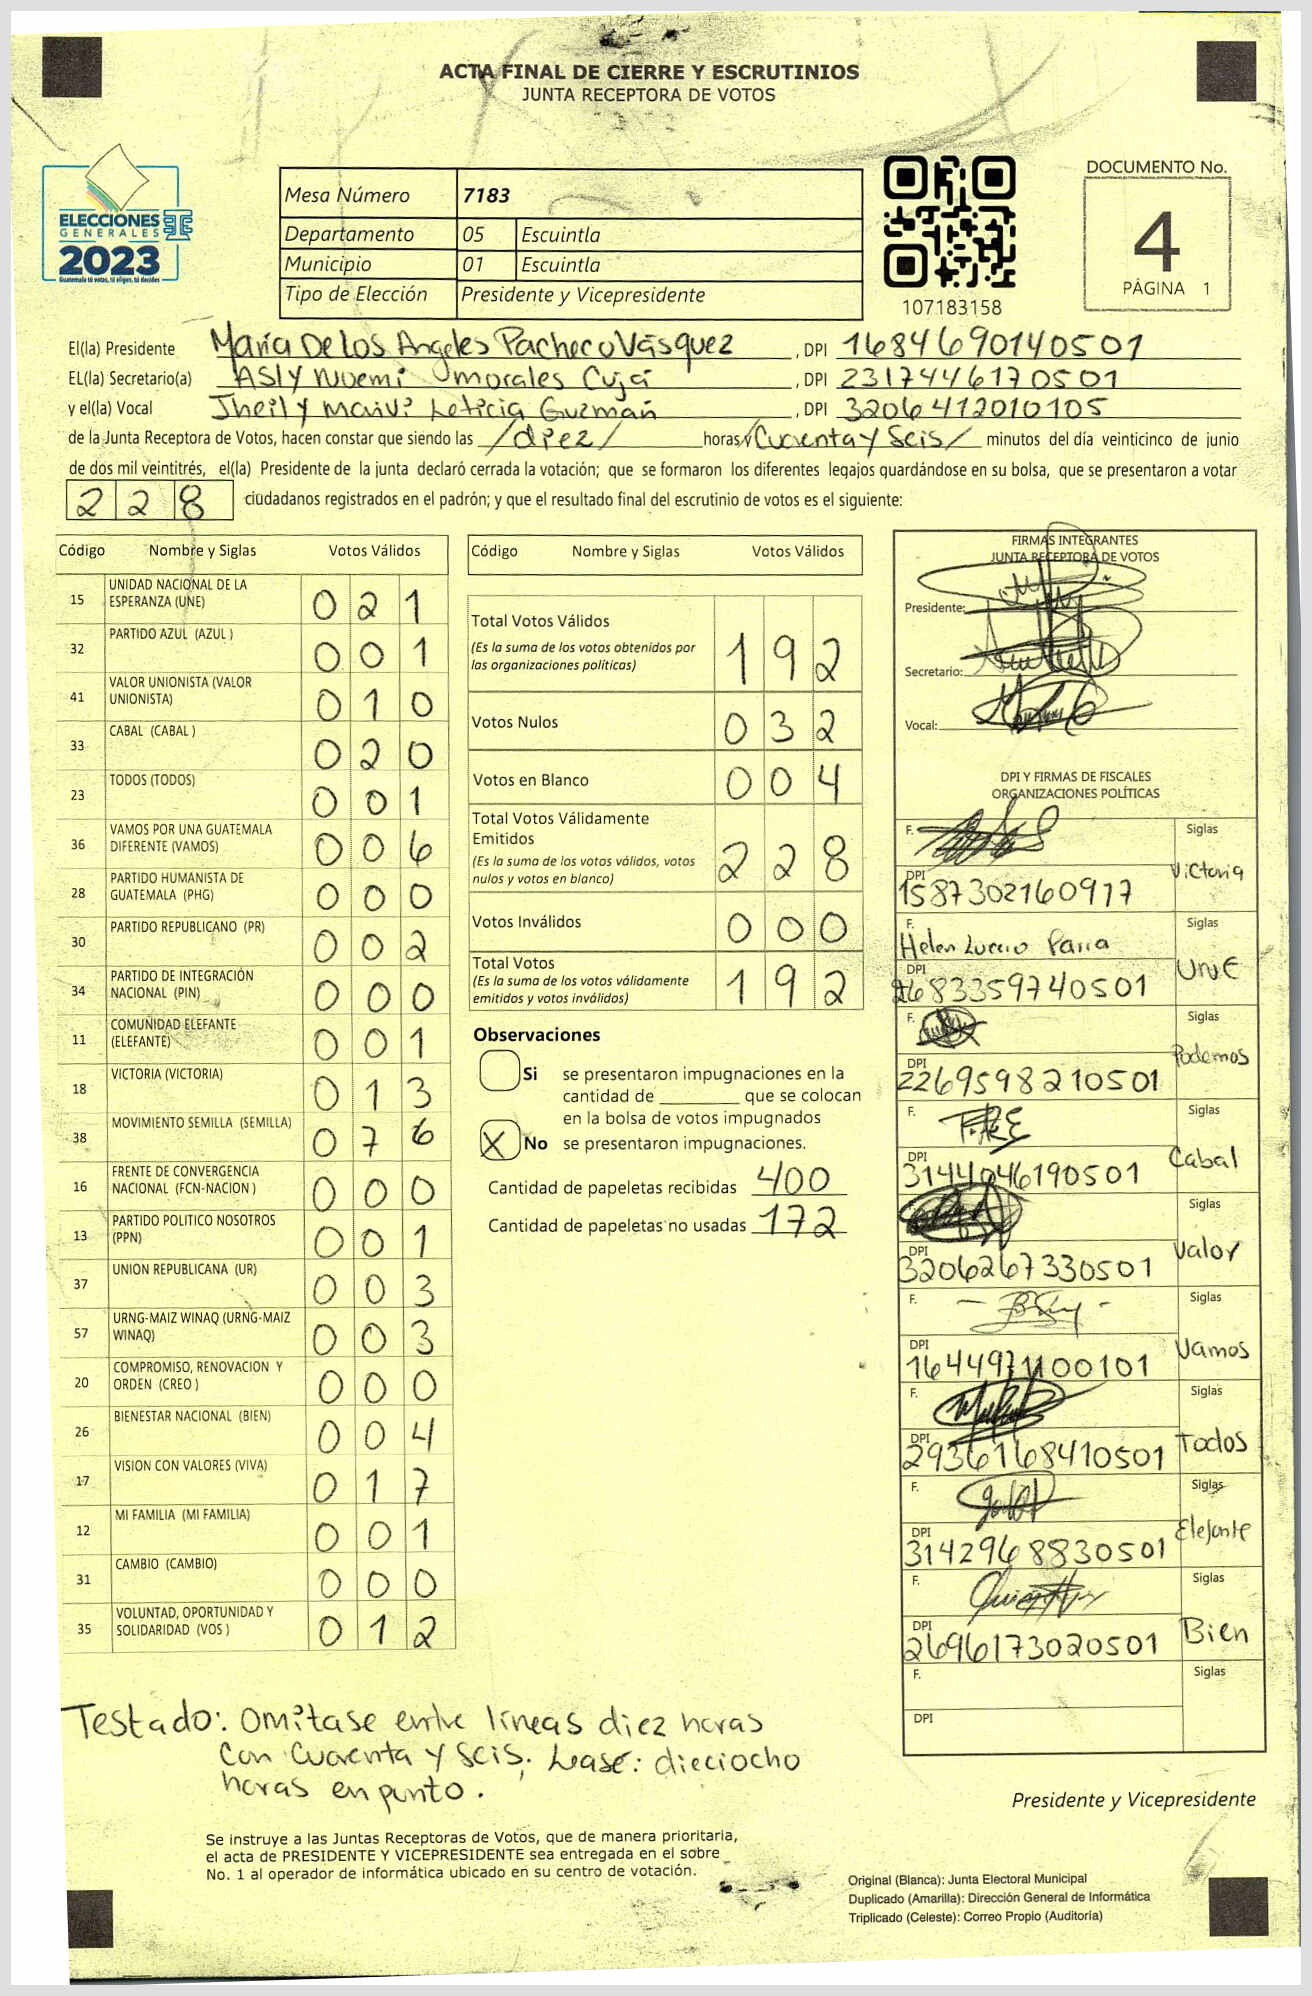 ACTA FINAL DE CIERRE Y ESCRUTINIOS
JUNTA RECEPTORA DE VOTOS
ELECCIONES
GENERALES
2023
Guatemala tú votas, tú eliges, tú decides
Mesa Número 7183
Departamento 05 Escuintla
Municipio 01 Escuintla
Tipo de Elección Presidente y Vicepresidente
107183158
DOCUMENTO No.
4
PÁGINA 1
El(la) Presidente María De Los Angeles Pacheco Vásquez, DPI 1684690140501
EL(la) Secretario(a) Asly Noemi morales Cujá, DPI 2317446170501
y el(la) Vocal Jheily Maivi Leticia Guzmán, DPI 3206412010105
de la Junta Receptora de Votos, hacen constar que siendo las /diez/ horas y Cuarenta y Seis/ minutos del día veinticinco de junio
de dos mil veintitrés, el(la) Presidente de la junta declaró cerrada la votación; que se formaron los diferentes legajos quardándose en su bolsa, que se presentaron a votar
228 ciudadanos registrados en el padrón; y que el resultado final del escrutinio de votos es el siguiente:
Código Nombre y Siglas Votos Válidos
15 UNIDAD NACIONAL DE LA ESPERANZA (UNE) 021
32 PARTIDO AZUL (AZUL ) 001
41 VALOR UNIONISTA (VALOR UNIONISTA) 010
33 CABAL (CABAL ) 020
23 TODOS (TODOS) 001
36 VAMOS POR UNA GUATEMALA DIFERENTE (VAMOS) 006
28 PARTIDO HUMANISTA DE GUATEMALA (PHG) 000
30 PARTIDO REPUBLICANO (PR) 002
34 PARTIDO DE INTEGRACIÓN NACIONAL (PIN) 000
11 COMUNIDAD ELEFANTE (ELEFANTE) 001
18 VICTORIA (VICTORIA) 013
38 MOVIMIENTO SEMILLA (SEMILLA) 076
16 FRENTE DE CONVERGENCIA NACIONAL (FCN-NACION ) 000
13 PARTIDO POLITICO NOSOTROS (PPN) 001
37 UNION REPUBLICANA (UR) 003
57 URNG-MAIZ WINAQ (URNG-MAIZ WINAQ) 003
20 COMPROMISO, RENOVACION Y ORDEN (CREO ) 000
26 BIENESTAR NACIONAL (BIEN) 004
17 VISION CON VALORES (VIVA) 017
12 MI FAMILIA (MI FAMILIA) 001
31 CAMBIO (CAMBIO) 000
35 VOLUNTAD, OPORTUNIDAD Y SOLIDARIDAD (VOS ) 012
Código Nombre y Siglas Votos Válidos
Total Votos Válidos 192
(Es la suma de los votos obtenidos por
las organizaciones políticas)
Votos Nulos 032
Votos en Blanco 004
Total Votos Válidamente
Emitidos 228
(Es la suma de los votos válidos, votos
nulos y votos en blanco)
Votos Inválidos 000
Total Votos 192
(Es la suma de los votos válidamente
emitidos y votos inválidos)
Observaciones
Si se presentaron impugnaciones en la
cantidad de ________ que se colocan
en la bolsa de votos impugnados
X No se presentaron impugnaciones.
Cantidad de papeletas recibidas 400
Cantidad de papeletas no usadas 172
FIRMAS INTEGRANTES
JUNTA RECEPTORA DE VOTOS
Presidente:
Secretario:
Vocal:
DPI Y FIRMAS DE FISCALES
ORGANIZACIONES POLÍTICAS
F. Siglas Victoria
DPI 1587302160917
F. Helen Lucrio Parra Siglas UNE
DPI 2683359740501
F. Siglas Podemos
DPI 2269598210501
F. Siglas Cabal
DPI 3144046190501
Siglas Valor
DPI 3206267330501
F. Siglas Vamos
DPI 1644971100101
F. Siglas Todos
DPI 2936168410501
F. Siglas Elefante
DPI 3142968830501
F. Siglas Bien
DPI 2696173020501
F. Siglas
DPI
Testado: Omítase entre líneas diez horas
con cuarenta y seis. Lease: dieciocho
horas en punto.
Presidente y Vicepresidente
Se instruye a las Juntas Receptoras de Votos, que de manera prioritaria,
el acta de PRESIDENTE Y VICEPRESIDENTE sea entregada en el sobre
No. 1 al operador de informática ubicado en su centro de votación.
Original (Blanca): Junta Electoral Municipal
Duplicado (Amarilla): Dirección General de Informática
Triplicado (Celeste): Correo Propio (Auditoría)